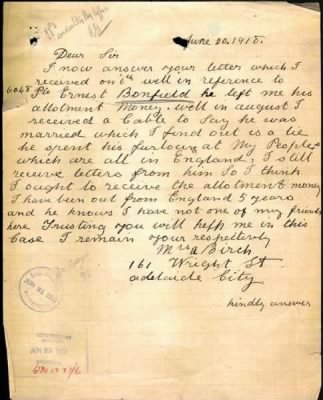 June 20. 1918.
Dear Sir
I now answer your letter which I
received on 6th well in reference to
6048 Pte Ernest Bonfield he left me his
allotment Money. well in august I
received a Cable to say he was
married which I find out is a lie
he spent his furlow at My Peoples
which are all in England, I still
receive letters from him So I think
I ought to receive the allotment money
I have been out from England 5 years
and he knows I have not one of my friends
here Trusting you will help me in this
Case I remain your respectively
Mrs A Birch
161 Wright St
adelaide City
kindly answer